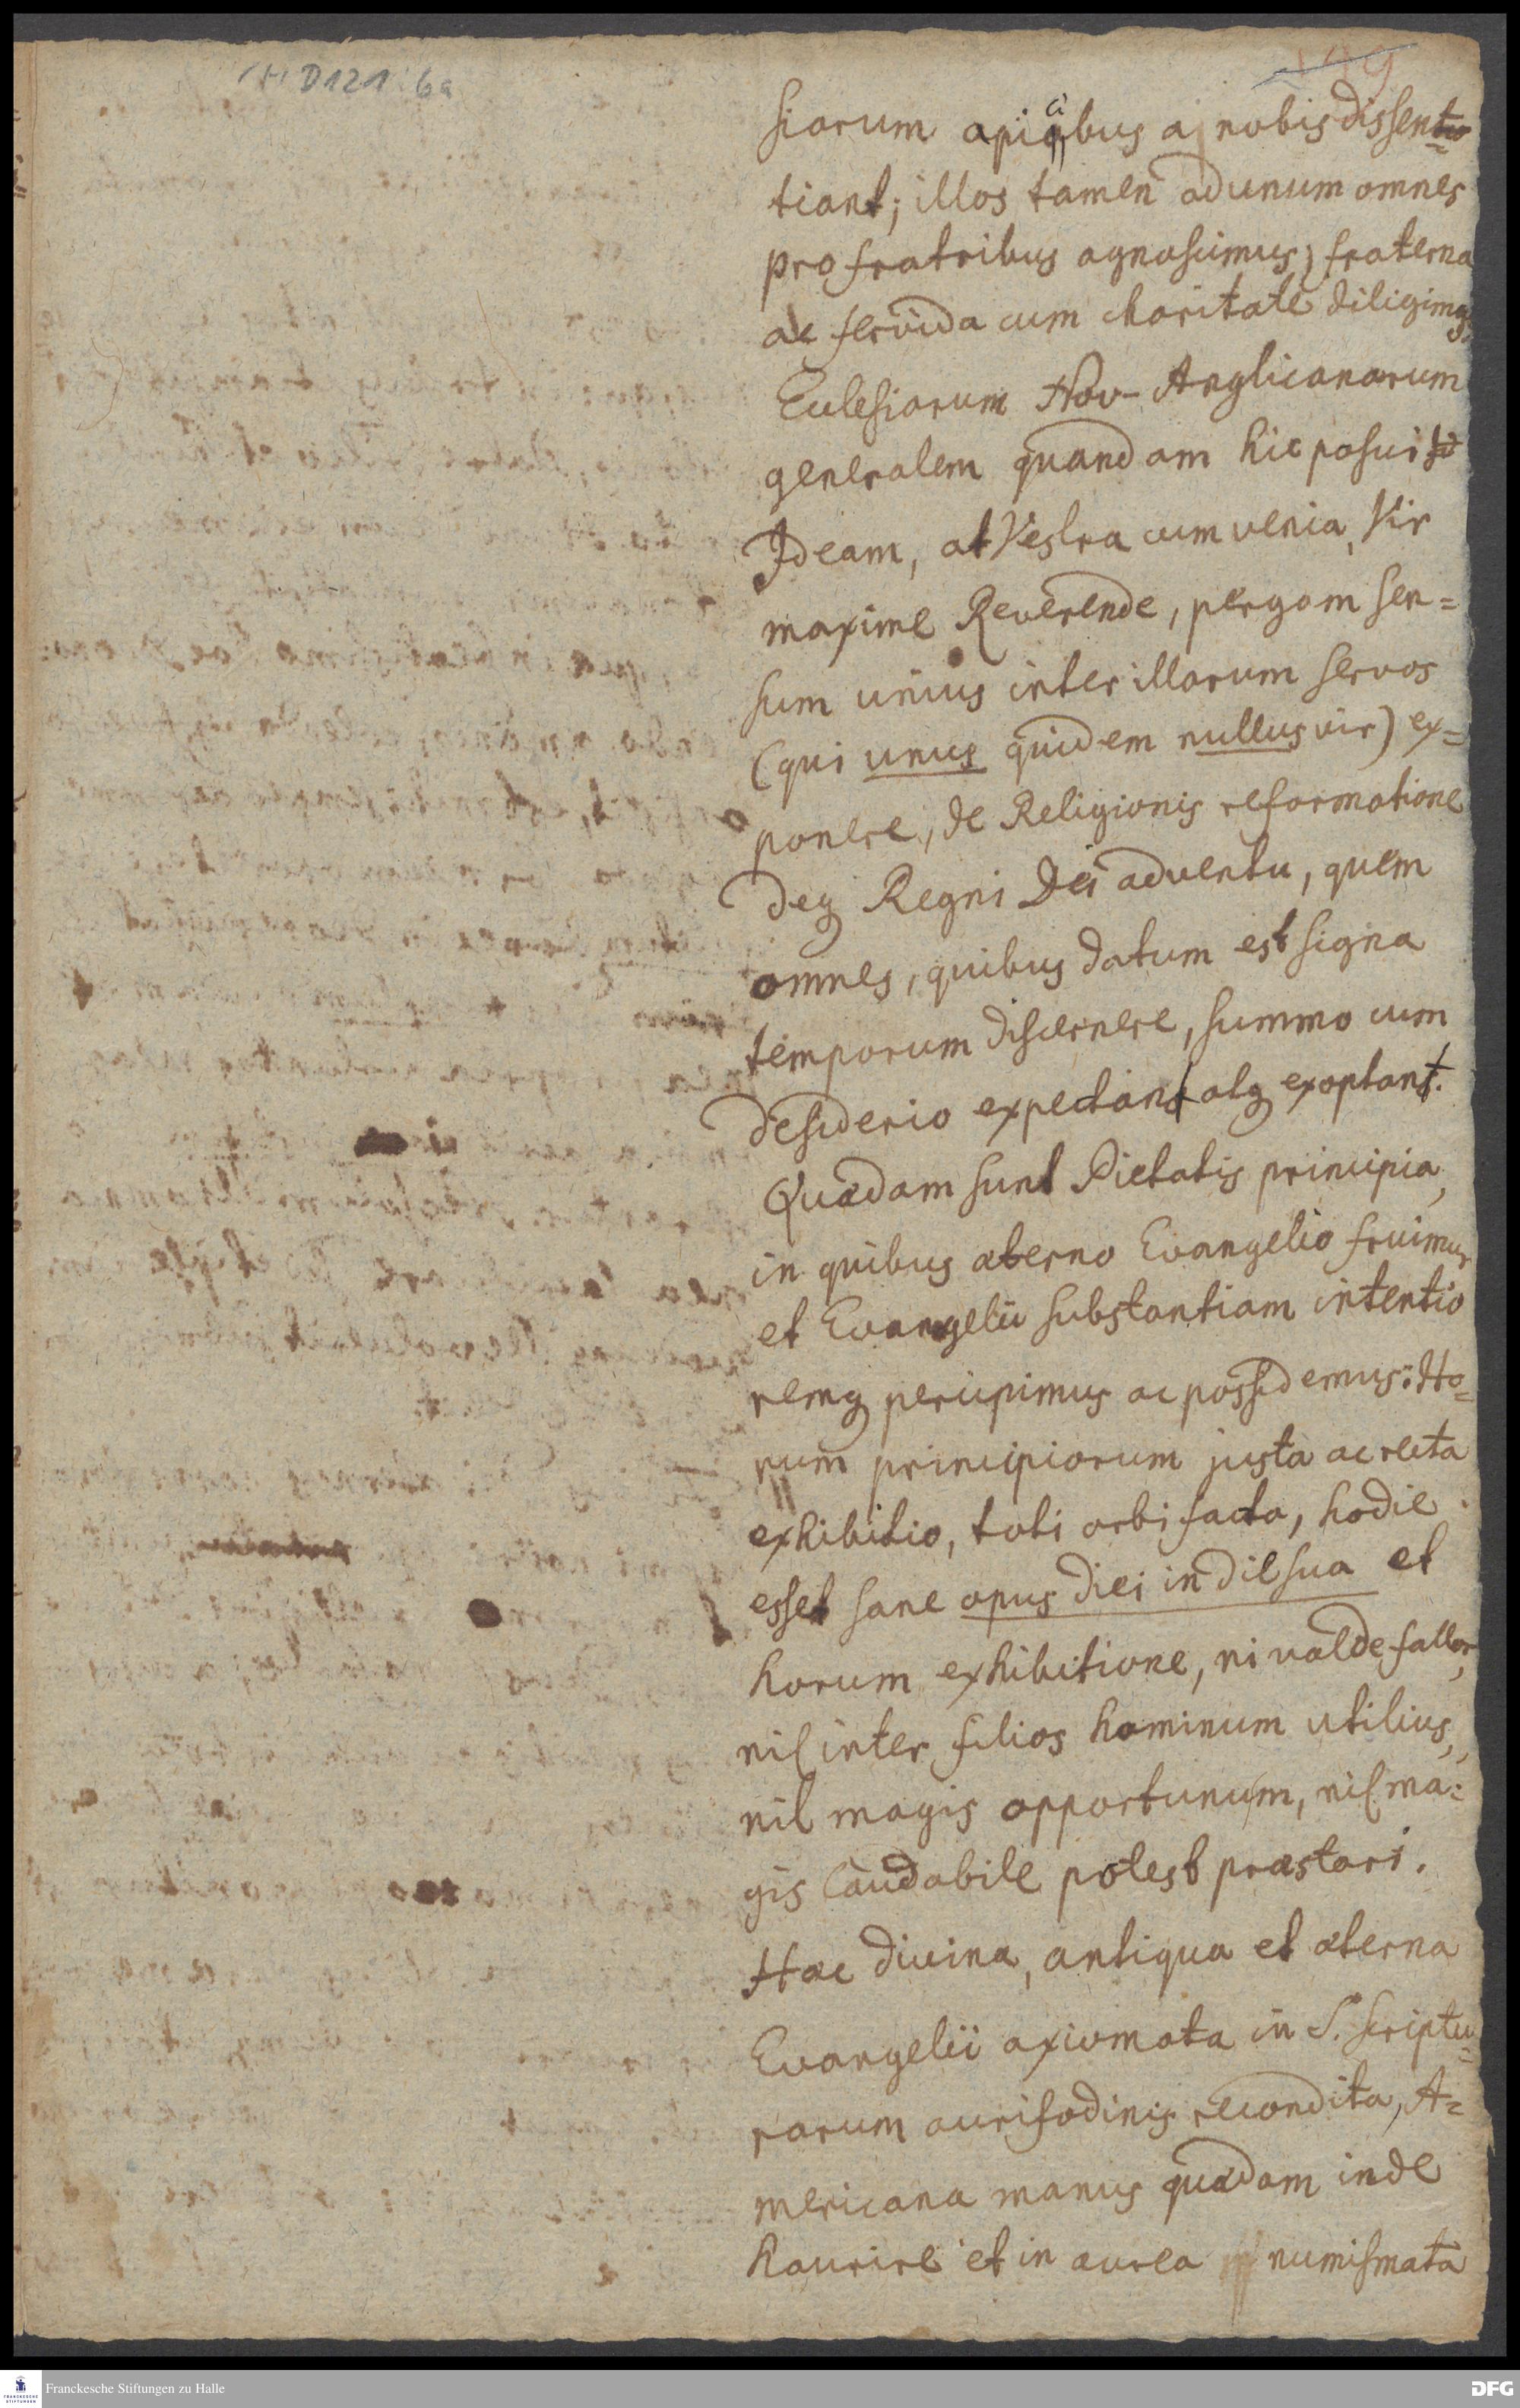 H D121 : 6a
149
siarum apicibus a nobis dissen
tiant; illos tamen ad unum omnes
pro fratribus agnoscimus, fraterna
ac fervida cum charitate diligimq.
Ecclesiarum Nov-Anglicanarum
generalem quandam hic posui
Ideam, at Vestra cum venia, Vir
maxime Reverende, pergam sen=
sum unius inter illarum servos
(qui unus quidem nullus vir) ex=
ponere, de Religionis reformatione
deq Regni Dei adventu, quem
omnes, quibus datum est signa
temporum discernere, summo cum
desiderio expectant atq exoptant.
Quædam sunt Pietatis principia,
in quibus æterno Evangelio fruimur
et Evangelii substantiam intentio
remq percipimus ac possidemus: Ho=
rum principiorum justa ac recta
exhibitio, toti orbi facta, hodie
esset sane opus diei in die sua et
horum exhibitione, ni valde fallor,
nil inter filios hominum utilius,
nil magis opportunum, nil ma=
gis laudabile potest præstari.
Hæc divina, antiqua et æterna
Evangelii axiomata in S. Scriptu=
rarum aurifodinis recondita, A=
mericana manus quædam inde
haurire et in aurea numismata
Franckesche Stiftungen zu Halle
DFG